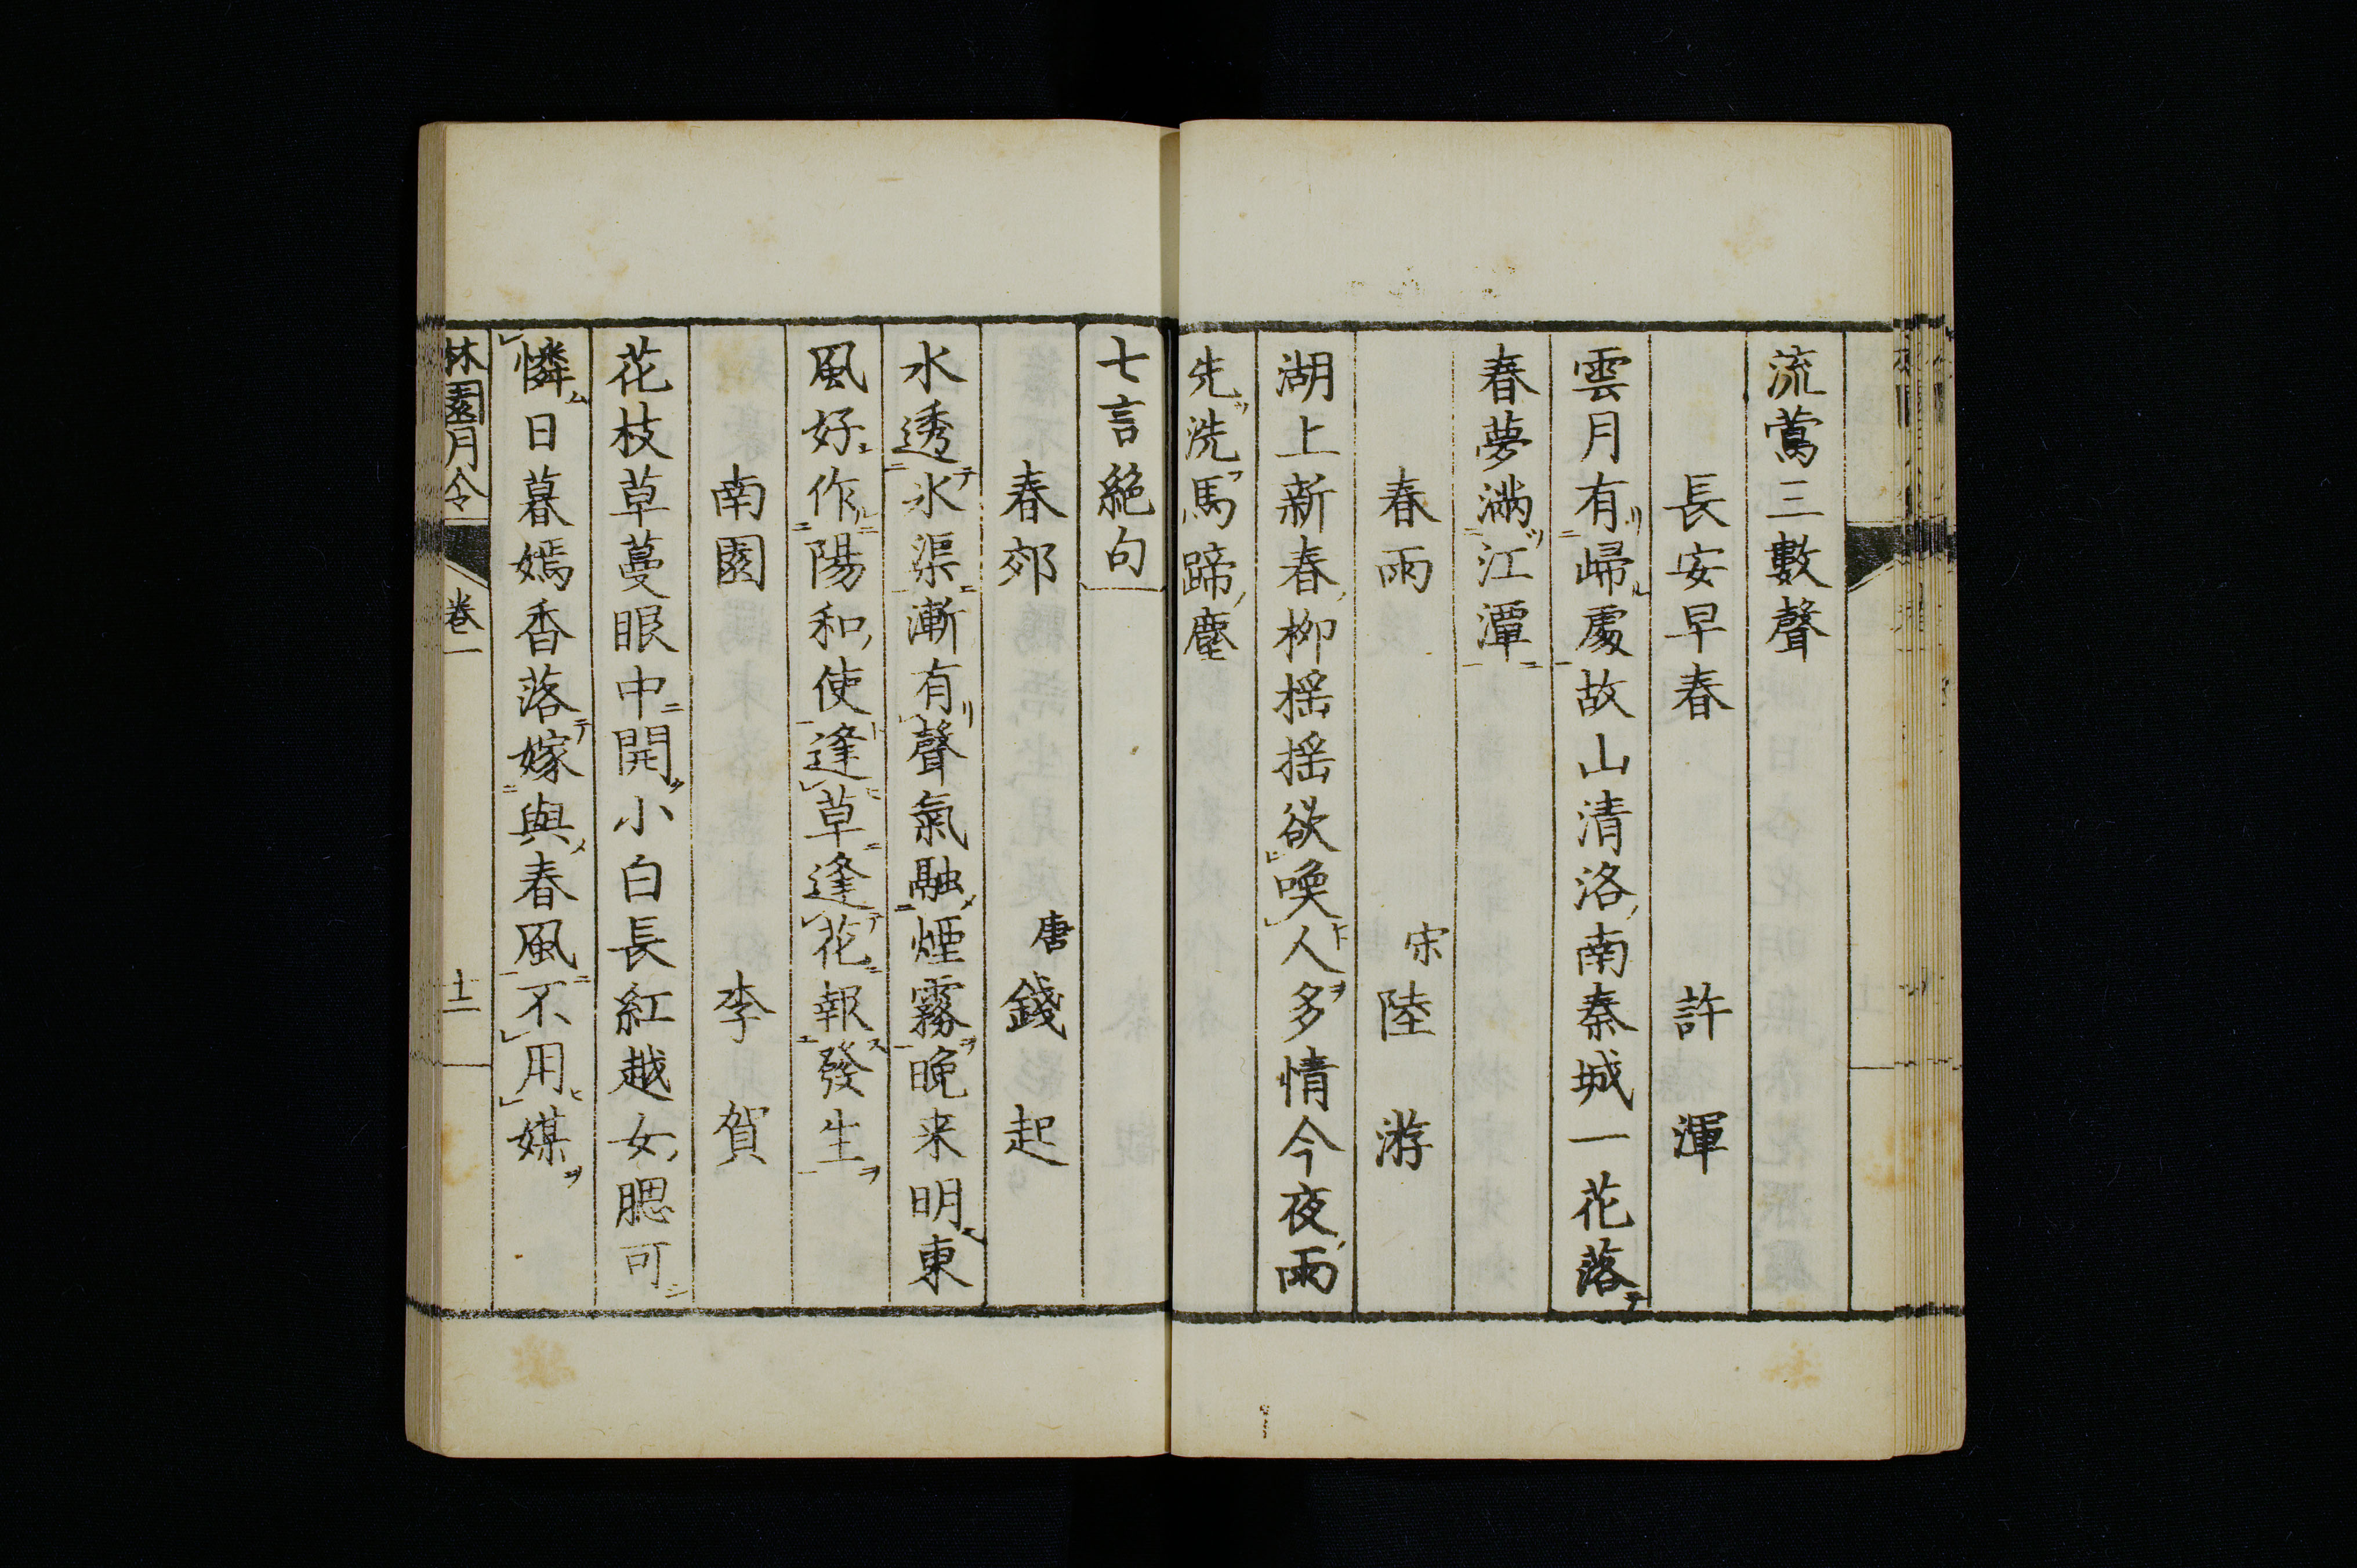 流鶯三數聲
長安早春 許渾
雲月有歸處故山清洛南秦城一花落
春夢滿江潭
春雨 宋 陸游
湖上新春柳搖搖欲喚人多情今夜雨
先洗馬蹄塵
七言絕句
春郊 唐 錢起
水透氷渠漸有聲氣融煙霧晚来明東
風好作陽和使逢草逢花報發生
南園 李賀
花枝草蔓眼中開小白長紅越女腮可
憐日暮嫣香落嫁與春風不用媒
林園月令 卷一 十二